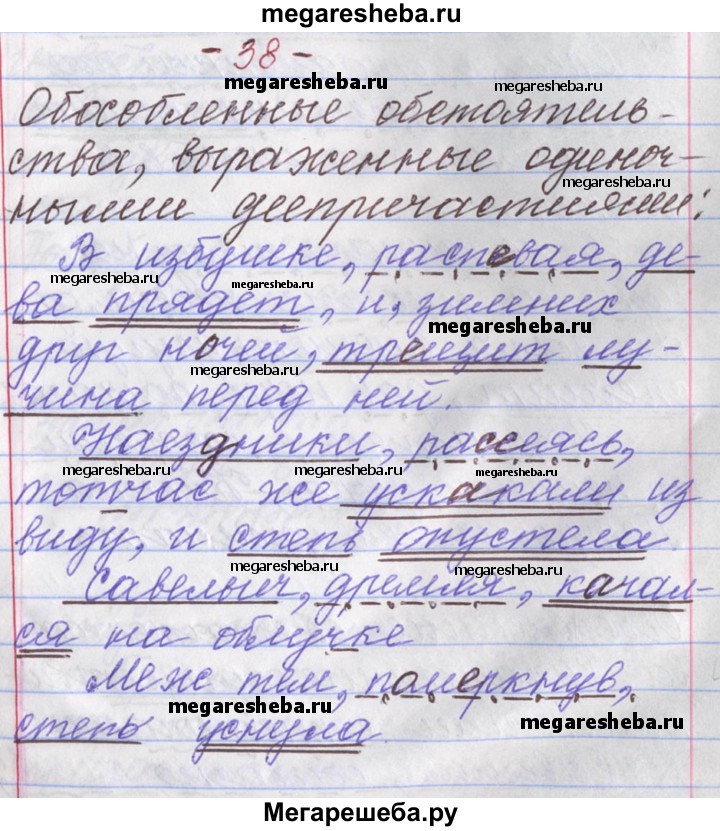 megaresheba.ru
- 38 -
megaresheba.ru
megaresheba.ru
Обособленные обстоятель-
ства, выраженные одиноч-
megaresheba.ru
ными деепричастиями:
В избушке, распевая, де-
megaresheba.ru
megaresheba.ru
ва прядет, и, зимних
megaresheba.ru
друг ночей, трещит лу-
чина перед ней.
Наездники, рассеясь,
megaresheba.ru
megaresheba.ru
megaresheba.ru
тотчас же ускакали из
виду, и степь опустела.
megaresheba.ru
megaresheba.ru
Савельич, дремля, качал-
ся на облучке
Меж тем, померкнув,
megaresheba.ru
megaresheba.ru
степь уснула.
Мегарешеба.ру